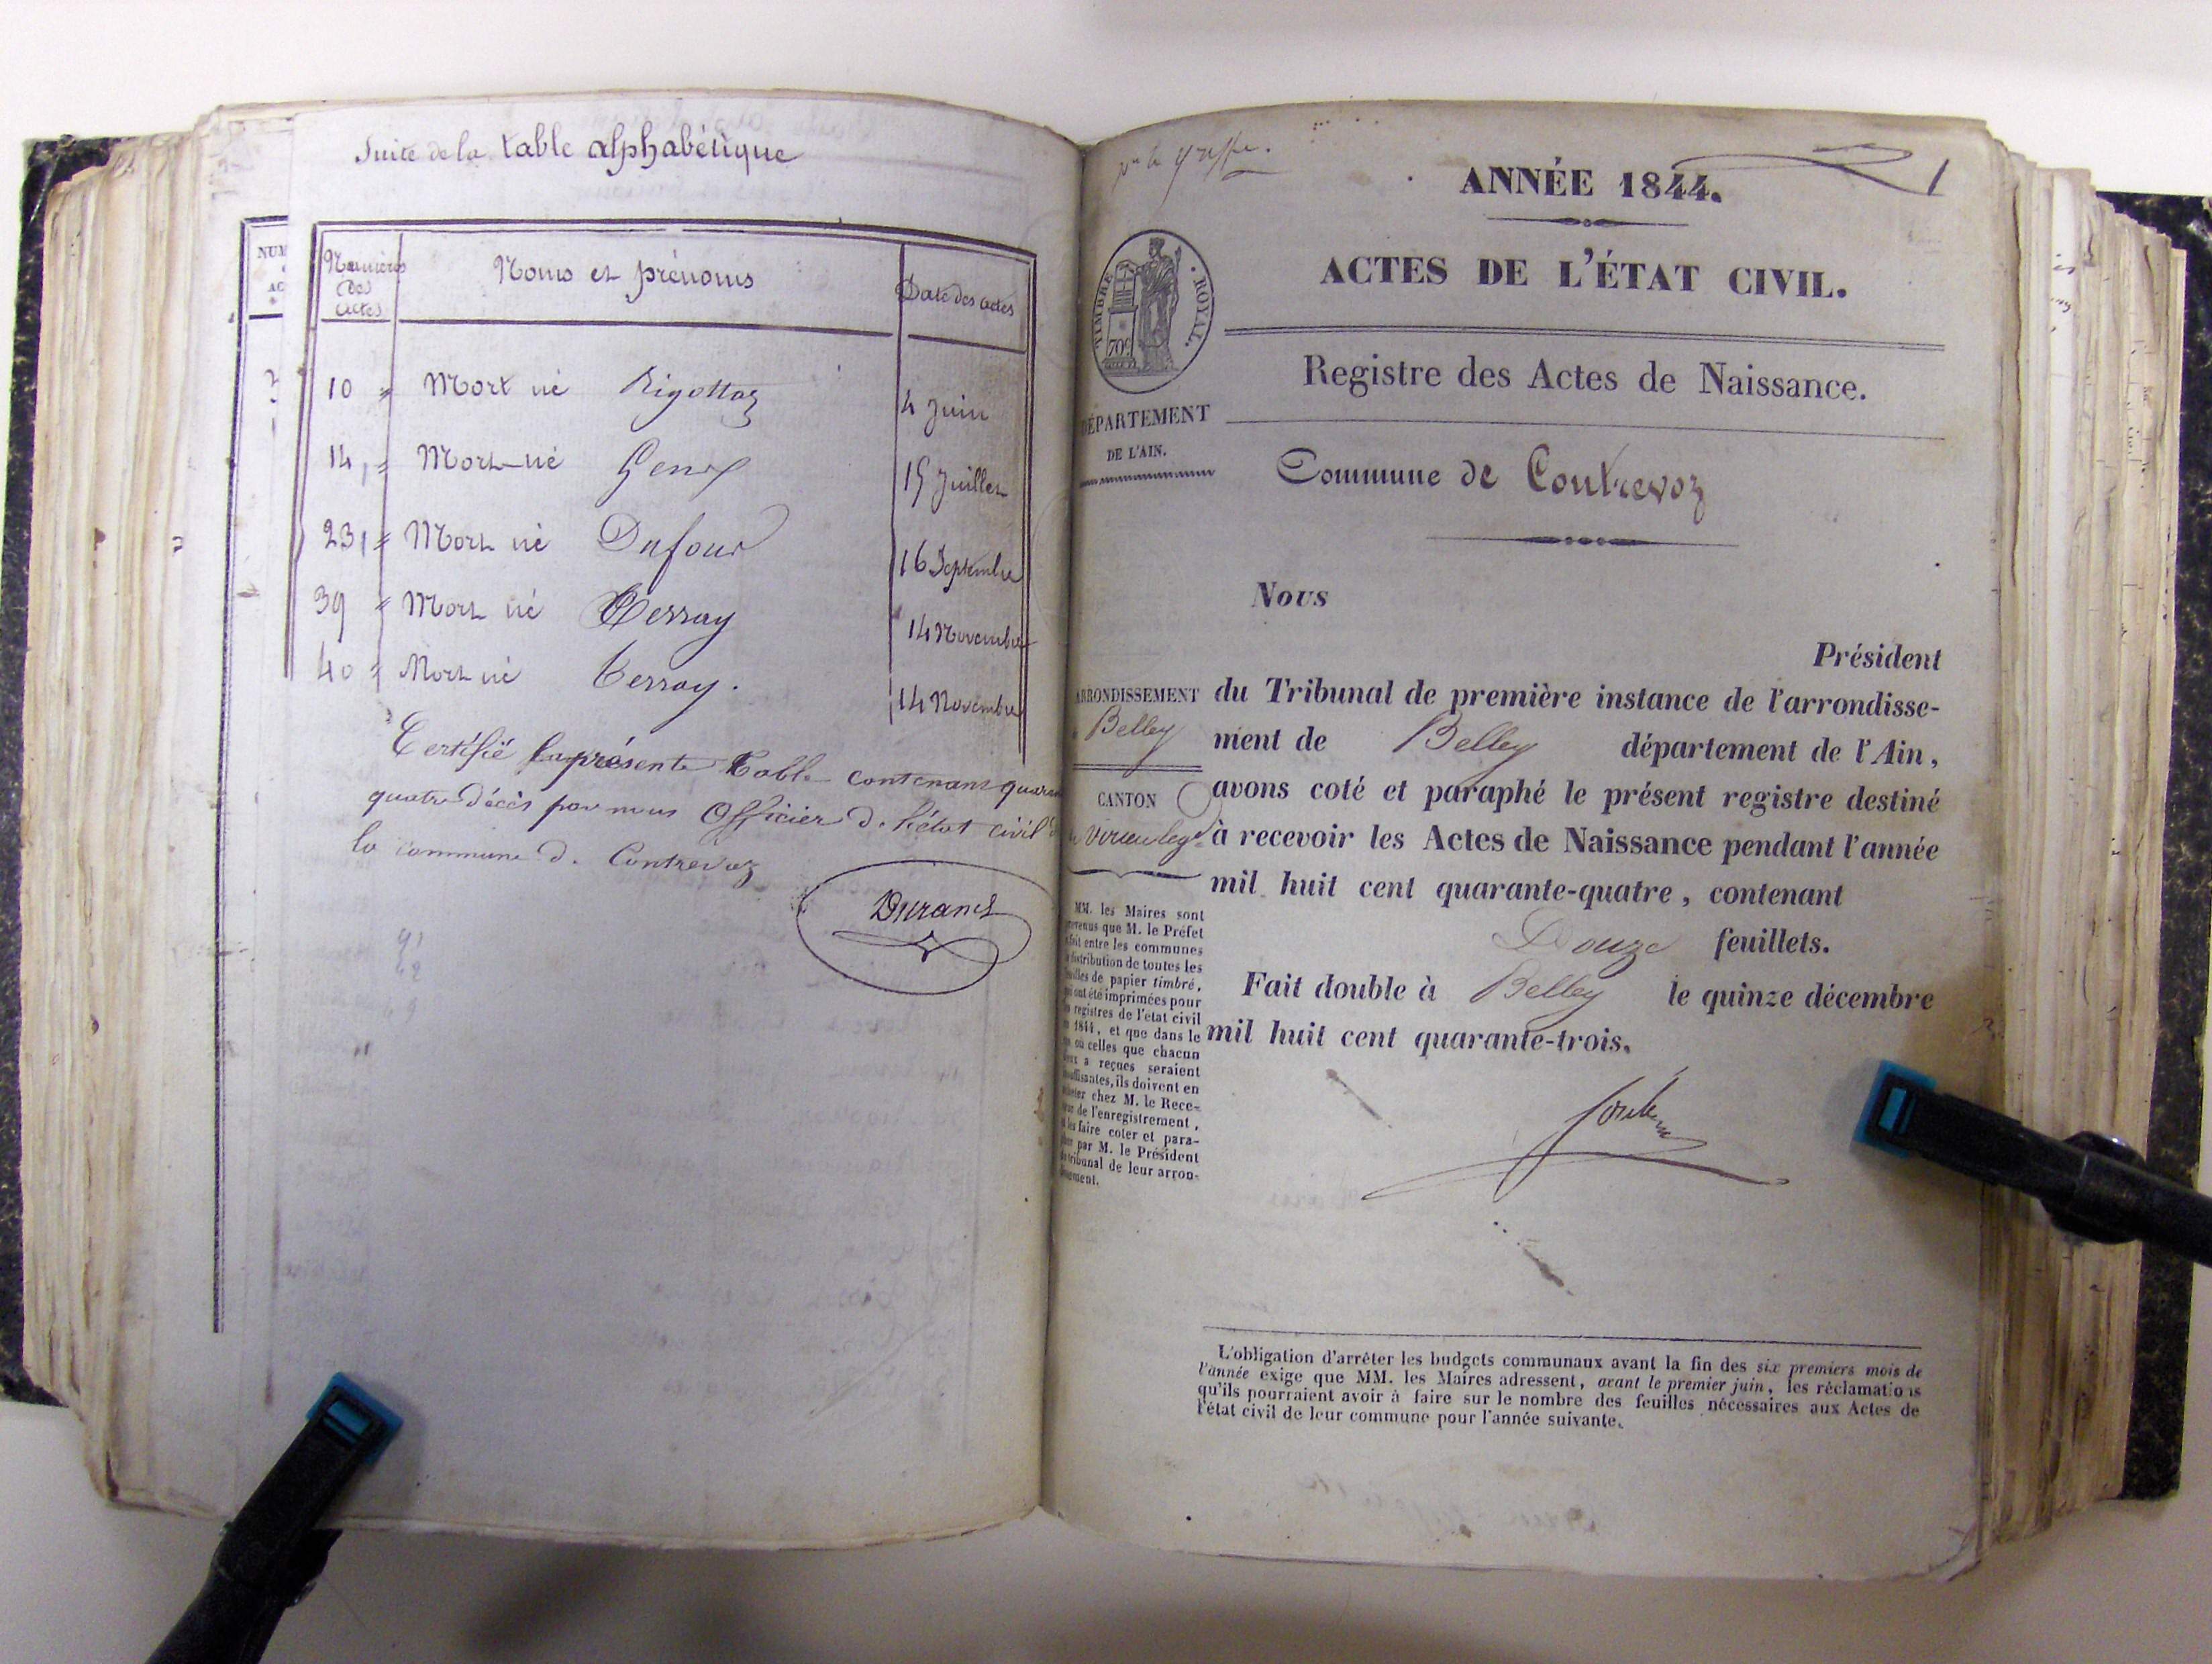 Suite de la table alphabétique
NUM
AC
Numéros des actes
Noms et prénoms
Date des actes
10 Mort né Rigottaz 4 Juin
14 Mort-né Genis 15 Juillet
23 Mort né Dufour 16 Septembre
39 Mort né Terray 14 Novembre
40 Mort né Terray. 14 Novembre
Certifié la présente Table contenant
quatre décès par nous Officier de l'état civil
la commune de Contrevoz
Durand
pr le greffe.
1
ANNÉE 1844.
ACTES DE L'ÉTAT CIVIL.
TIMBRE ROYAL.
70c
Registre des Actes de Naissance.
DÉPARTEMENT
DE L'AIN.
Commune de Contrevoz
Nous
Président
ARRONDISSEMENT
Belley
CANTON
du Tribunal de première instance de l'arrondisse-
ment de Belley département de l'Ain,
avons coté et paraphé le présent registre destiné
à recevoir les Actes de Naissance pendant l'année
mil huit cent quarante-quatre, contenant
Douze feuillets.
Fait double à Belley le quinze décembre
mil huit cent quarante-trois.
MM. les Maires sont
prévenus que M. le Préfet
a fait entre les communes
la distribution de toutes les
feuilles de papier timbré,
qui ont été imprimées pour
les registres de l'état civil
en 1844, et que dans le
cas où celles que chacun
d'eux a reçues seraient
insuffisantes, ils doivent en
acheter chez M. le Rece-
veur de l'enregistrement,
et les faire coter et para-
pher par M. le Président
du tribunal de leur arron-
dissement.
L'obligation d'arrêter les budgets communaux avant la fin des six premiers mois de
l'année exige que MM. les Maires adressent, avant le premier juin, les réclamations
qu'ils pourraient avoir à faire sur le nombre des feuilles nécessaires aux Actes de
l'état civil de leur commune pour l'année suivante.